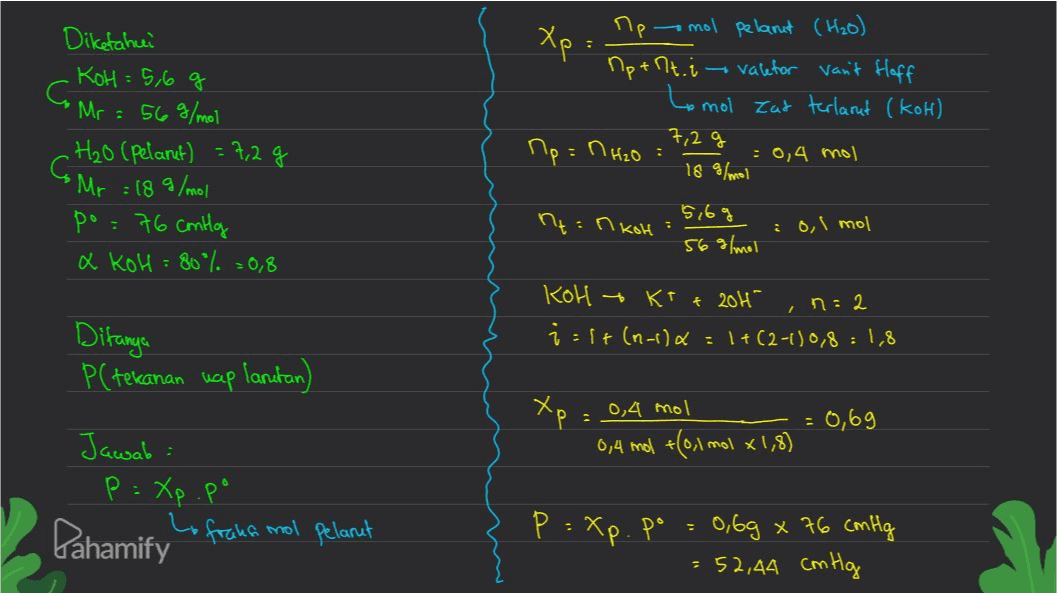 Diketahui
KOH = 5,6 g
Mr = 56 g/mol
H₂O (pelarut) = 7,2 g
Mr = 18 g/mol
P° = 76 cmHg
α KOH = 80% = 0,8
Ditanya
P (tekanan uap larutan)
Jawab :
P = Xp . P°
fraksi mol pelarut
Pahamify
Xp = np / (np + nt.i)
mol pelarut (H₂O)
vaktor van't Hoff
mol zat terlarut (KOH)
np = n H₂O = 7,2 g / 18 g/mol = 0,4 mol
nt = n KOH = 5,6 g / 56 g/mol = 0,1 mol
KOH → K⁺ + 2OH⁻ , n = 2
i = 1 + (n-1)α = 1 + (2-1)0,8 = 1,8
Xp = 0,4 mol / 0,4 mol + (0,1 mol x 1,8) = 0,69
P = Xp . P° = 0,69 x 76 cmHg
= 52,44 cmHg